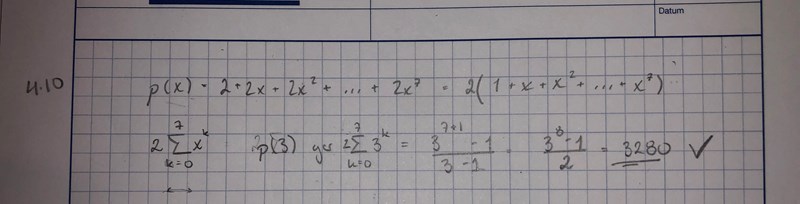 Datum
4.10
p(x) = 2 + 2x + 2x² + ... + 2x⁷ = 2(1 + x + x² + ... + x⁷)
2 ∑_{k=0}^{7} x^k p(3) ger 2∑_{k=0}^{7} 3^k = \frac{3^{7+1} - 1}{3 - 1} = \frac{3^8 - 1}{2} = 3280 ✓